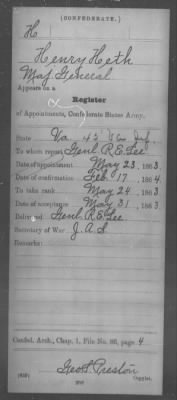 (CONFEDERATE.)
H
Henry Heth
Maj General
Appears on a
Register
of Appointments, Confederate States Army.
State Va. 45 Va Inf.
To whom report Genl R.E. Lee
Date of appointment May 23, 1863.
Date of confirmation Feb. 17, 1864.
To take rank May 24, 1863
Date of acceptance May 31, 1863
Delivered Genl. R.E. Lee
Secretary of War J.A.S
Remarks:
Confed. Arch., Chap. 1, File No. 86, page 4
Geo S. Preston
Copyist.